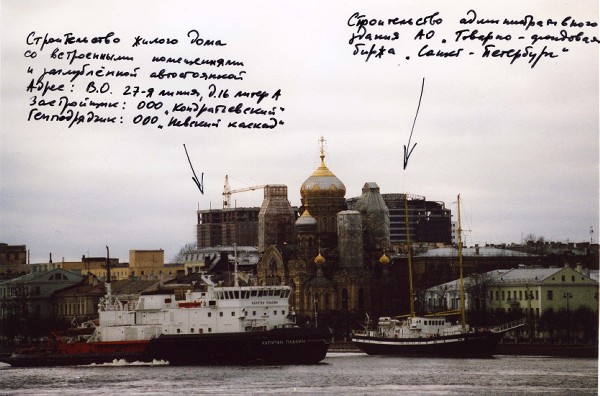 Строительство жилого дома
со встроенными помещениями
и заглублённой автостоянкой
Адрес: В.О. 27-я линия, д.16 литер А
Застройщик: ООО „Кондратьевский"
Генподрядчик: ООО „Невский каскад"
Строительство административного
здания АО „Товарно-фондовая
биржа „Санкт-Петербург"